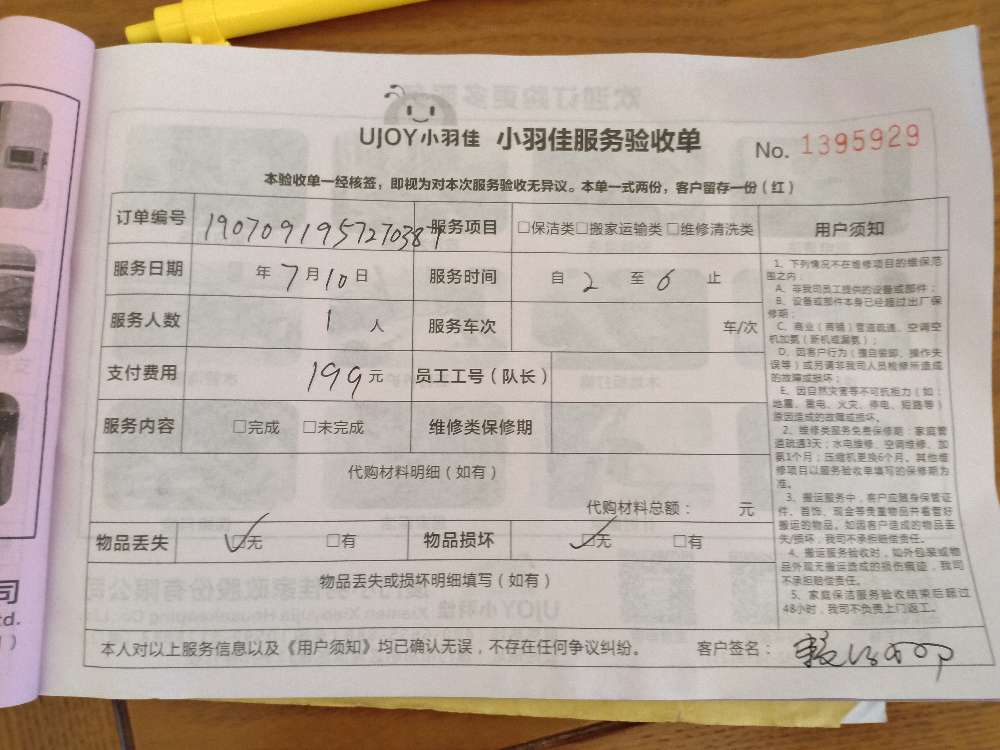 UJOY小羽佳 小羽佳服务验收单 No. 1395929
本验收单一经核签，即视为对本次服务验收无异议。本单一式两份，客户留存一份（红）
订单编号 190709195727038 服务项目 □保洁类□搬家运输类□维修清洗类
服务日期 年7月10日 服务时间 自 2 至 6 止
服务人数 1 人 服务车次 车/次
支付费用 199元 员工工号（队长）
服务内容 □完成 □未完成 维修类保修期
代购材料明细（如有）
代购材料总额： 元
物品丢失 ☑无 □有 物品损坏 ☑无 □有
物品丢失或损坏明细填写（如有）
用户须知
1、下列情况不在维修项目的维保范
围之内：
A、非我司员工提供的设备或部件；
B、设备或部件本身已经超过出厂保
修期；
C、商业（商铺）管道疏通、空调空
机加氨（新机或漏氨）；
D、因客户行为（擅自装卸、操作失
误等）或另请非我司人员检修所造成
的故障或损坏；
E、因自然灾害等不可抗拒力（如：
地震、雷电、火灾、停电、短路等）
原因造成的故障或损坏。
2、维修类服务免费保修期：家庭管
道疏通3天；水电维修、空调维修、加
氨1个月；压缩机更换6个月。其他维
修项目以服务验收单填写的保修期为
准。
3、搬运服务中，客户应随身保管证
件、首饰、现金等贵重物品并看管好
搬运的物品。如因客户造成的物品丢
失/损坏，我司不承担赔偿责任。
4、搬运服务验收时，如外包装或物
品外观无搬运造成的损伤痕迹，我司
不承担赔偿责任。
5、家庭保洁服务验收结束后超过
48小时，我司不负责上门返工。
本人对以上服务信息以及《用户须知》均已确认无误，不存在任何争议纠纷。 客户签名：
司
td.